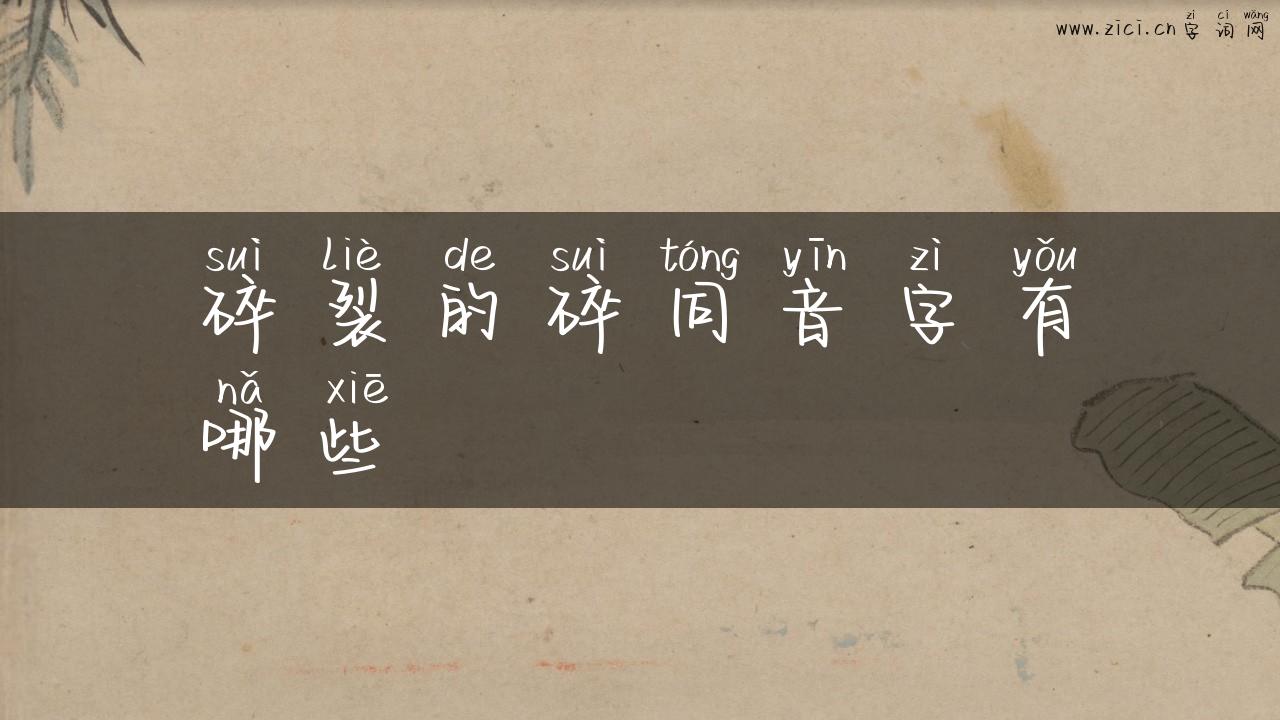 zì cí wǎng
www.zici.cn 字词网
suì liè de suì tóng yīn zì yǒu
碎裂的碎同音字有
nǎ xiē
哪些